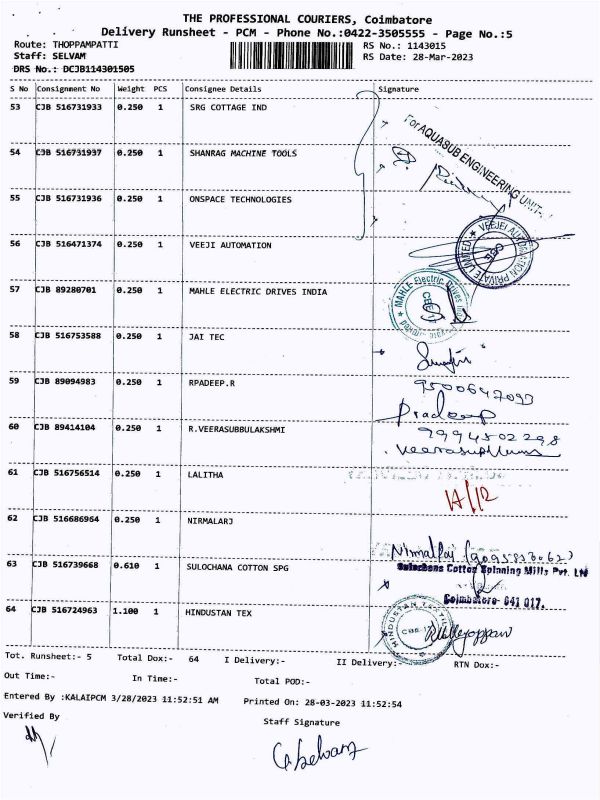 THE PROFESSIONAL COURIERS, Coimbatore
Delivery Runsheet - PCM - Phone No.:0422-3505555 - Page No.:5
Route: THOPPAMPATTI RS No.: 1143015
Staff: SELVAM RS Date: 28-Mar-2023
DRS No.: DCJB114301505
S No Consignment No Weight PCS Consignee Details Signature
53 CJB 516731933 0.250 1 SRG COTTAGE IND
For AQUASUB ENGINEERING UNIT-
54 CJB 516731937 0.250 1 SHANRAG MACHINE TOOLS
55 CJB 516731936 0.250 1 ONSPACE TECHNOLOGIES
56 CJB 516471374 0.250 1 VEEJI AUTOMATION
VEEJEI AUTOMATION PRIVATE LIMITED
57 CJB 89280701 0.250 1 MAHLE ELECTRIC DRIVES INDIA
MAHLE Electric Drives
58 CJB 516753588 0.250 1 JAI TEC
59 CJB 89094983 0.250 1 RPADEEP.R
9500647093
Pradeep
60 CJB 89414104 0.250 1 R.VEERASUBBULAKSHMI
9994502298
61 CJB 516756514 0.250 1 LALITHA
62 CJB 516686964 0.250 1 NIRMALARJ
Nirmalraj
63 CJB 516739668 0.610 1 SULOCHANA COTTON SPG
Sulochana Cotton Spinning Mills Pvt. Ltd
Coimbatore- 641 017.
64 CJB 516724963 1.100 1 HINDUSTAN TEX
HINDUSTAN TEXTILE
Tot. Runsheet:- 5 Total Dox:- 64 I Delivery:- II Delivery:- RTN Dox:-
Out Time:- In Time:- Total POD:-
Entered By :KALAIPCM 3/28/2023 11:52:51 AM Printed On: 28-03-2023 11:52:54
Verified By Staff Signature
G. Selvam